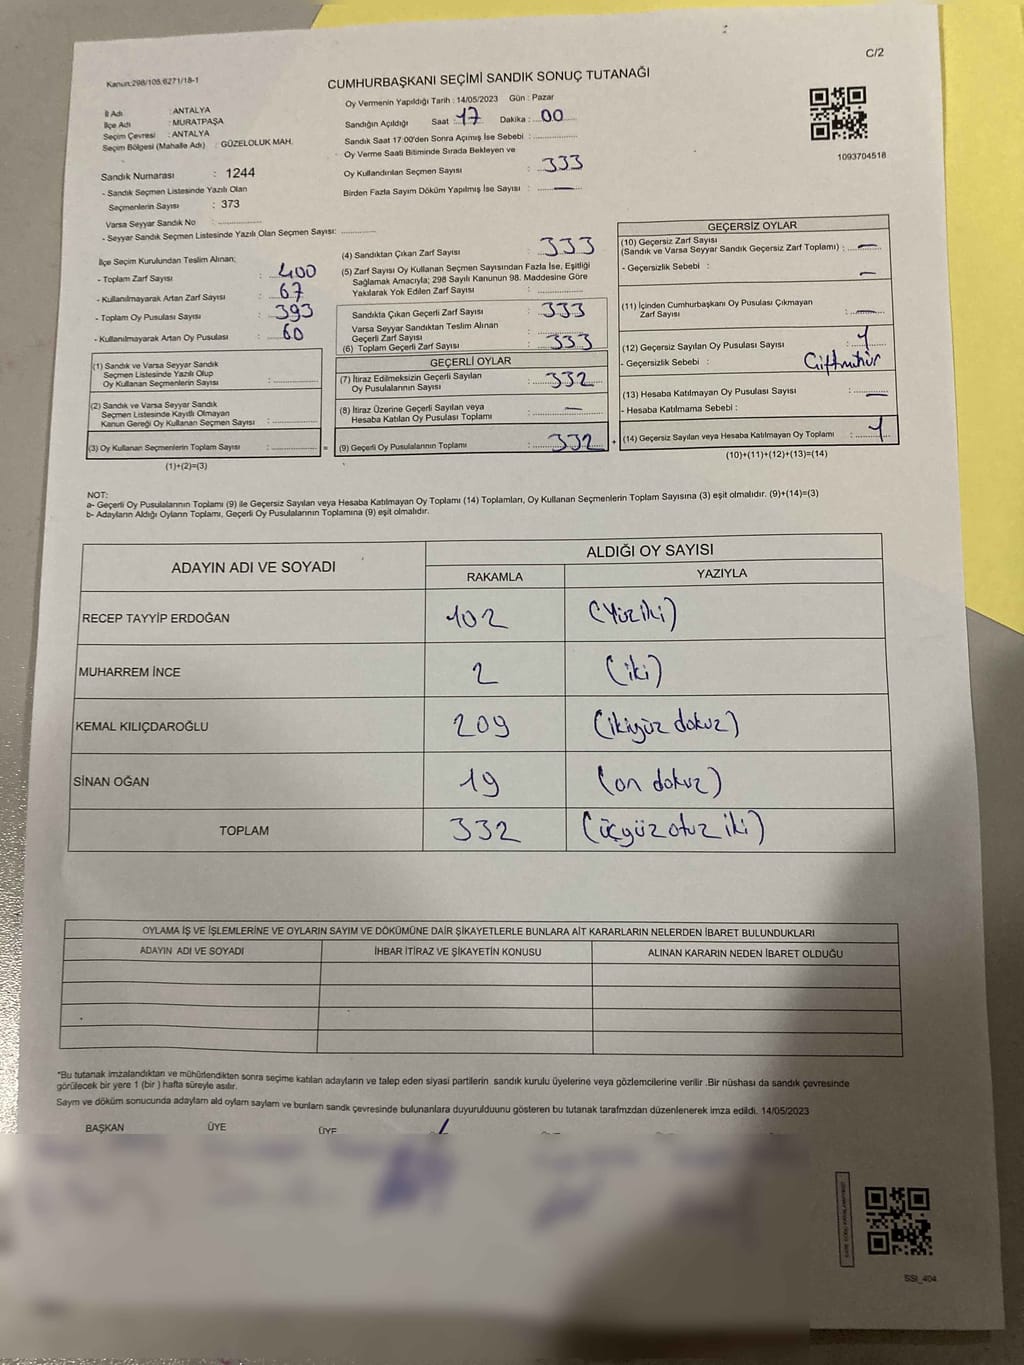 C/2
Kanun:298/105.6271/18-1
CUMHURBAŞKANI SEÇİMİ SANDIK SONUÇ TUTANAĞI
İl Adı : ANTALYA
İlçe Adı : MURATPAŞA
Seçim Çevresi : ANTALYA
Seçim Bölgesi (Mahalle Adı) : GÜZELOLUK MAH.
Sandık Numarası : 1244
- Sandık Seçmen Listesinde Yazılı Olan
Seçmenlerin Sayısı : 373
Varsa Seyyar Sandık No :
- Seyyar Sandık Seçmen Listesinde Yazılı Olan Seçmen Sayısı:
Oy Vermenin Yapıldığı Tarih : 14/05/2023 Gün : Pazar
Sandığın Açıldığı Saat : 17 Dakika : 00
Sandık Saat 17:00'den Sonra Açılmış İse Sebebi :
Oy Verme Saati Bitiminde Sırada Bekleyen ve
Oy Kullandırılan Seçmen Sayısı : 333
Birden Fazla Sayım Döküm Yapılmış İse Sayısı : —
1093704518
İlçe Seçim Kurulundan Teslim Alınan;
- Toplam Zarf Sayısı : 400
- Kullanılmayarak Artan Zarf Sayısı : 67
- Toplam Oy Pusulası Sayısı : 393
- Kullanılmayarak Artan Oy Pusulası : 60
(1) Sandık ve Varsa Seyyar Sandık
Seçmen Listesinde Yazılı Olup
Oy Kullanan Seçmenlerin Sayısı :
(2) Sandık ve Varsa Seyyar Sandık
Seçmen Listesinde Kayıtlı Olmayan
Kanun Gereği Oy Kullanan Seçmen Sayısı :
(3) Oy Kullanan Seçmenlerin Toplam Sayısı : =
(1)+(2)=(3)
(4) Sandıktan Çıkan Zarf Sayısı : 333
(5) Zarf Sayısı Oy Kullanan Seçmen Sayısından Fazla İse, Eşitliği
Sağlamak Amacıyla; 298 Sayılı Kanunun 98. Maddesine Göre
Yakılarak Yok Edilen Zarf Sayısı :
Sandıkta Çıkan Geçerli Zarf Sayısı : 333
Varsa Seyyar Sandıktan Teslim Alınan
Geçerli Zarf Sayısı :
(6) Toplam Geçerli Zarf Sayısı : 333
GEÇERLİ OYLAR
(7) İtiraz Edilmeksizin Geçerli Sayılan
Oy Pusulalarının Sayısı : 332
(8) İtiraz Üzerine Geçerli Sayılan veya
Hesaba Katılan Oy Pusulası Toplamı : —
(9) Geçerli Oy Pusulalarının Toplamı : 332 +
GEÇERSİZ OYLAR
(10) Geçersiz Zarf Sayısı
(Sandık ve Varsa Seyyar Sandık Geçersiz Zarf Toplamı) : —
- Geçersizlik Sebebi : —
(11) İçinden Cumhurbaşkanı Oy Pusulası Çıkmayan
Zarf Sayısı : —
(12) Geçersiz Sayılan Oy Pusulası Sayısı : 1
- Geçersizlik Sebebi : Çiftmühür
(13) Hesaba Katılmayan Oy Pusulası Sayısı : —
- Hesaba Katılmama Sebebi :
(14) Geçersiz Sayılan veya Hesaba Katılmayan Oy Toplamı : 1
(10)+(11)+(12)+(13)=(14)
NOT:
a- Geçerli Oy Pusulalarının Toplamı (9) ile Geçersiz Sayılan veya Hesaba Katılmayan Oy Toplamı (14) Toplamları, Oy Kullanan Seçmenlerin Toplam Sayısına (3) eşit olmalıdır. (9)+(14)=(3)
b- Adayların Aldığı Oyların Toplamı, Geçerli Oy Pusulalarının Toplamına (9) eşit olmalıdır.
ADAYIN ADI VE SOYADI ALDIĞI OY SAYISI
RAKAMLA YAZIYLA
RECEP TAYYİP ERDOĞAN 102 (Yüziki)
MUHARREM İNCE 2 (iki)
KEMAL KILIÇDAROĞLU 209 (ikiyüz dokuz)
SİNAN OĞAN 19 (on dokuz)
TOPLAM 332 (üçyüzotuz iki)
OYLAMA İŞ VE İŞLEMLERİNE VE OYLARIN SAYIM VE DÖKÜMÜNE DAİR ŞİKAYETLERLE BUNLARA AİT KARARLARIN NELERDEN İBARET BULUNDUKLARI
ADAYIN ADI VE SOYADI İHBAR İTİRAZ VE ŞİKAYETİN KONUSU ALINAN KARARIN NEDEN İBARET OLDUĞU
*Bu tutanak imzalandıktan ve mühürlendikten sonra seçime katılan adayların ve talep eden siyasi partilerin sandık kurulu üyelerine veya gözlemcilerine verilir .Bir nüshası da sandık çevresinde
görülecek bir yere 1 (bir ) hafta süreyle asılır.
Sayım ve döküm sonucunda adaylam ald oylam saylam ve bunlam sandk çevresinde bulunanlara duyurulduunu gösteren bu tutanak tarafmzdan düzenlenerek imza edildi. 14/05/2023
BAŞKAN ÜYE ÜYE
SSI_404